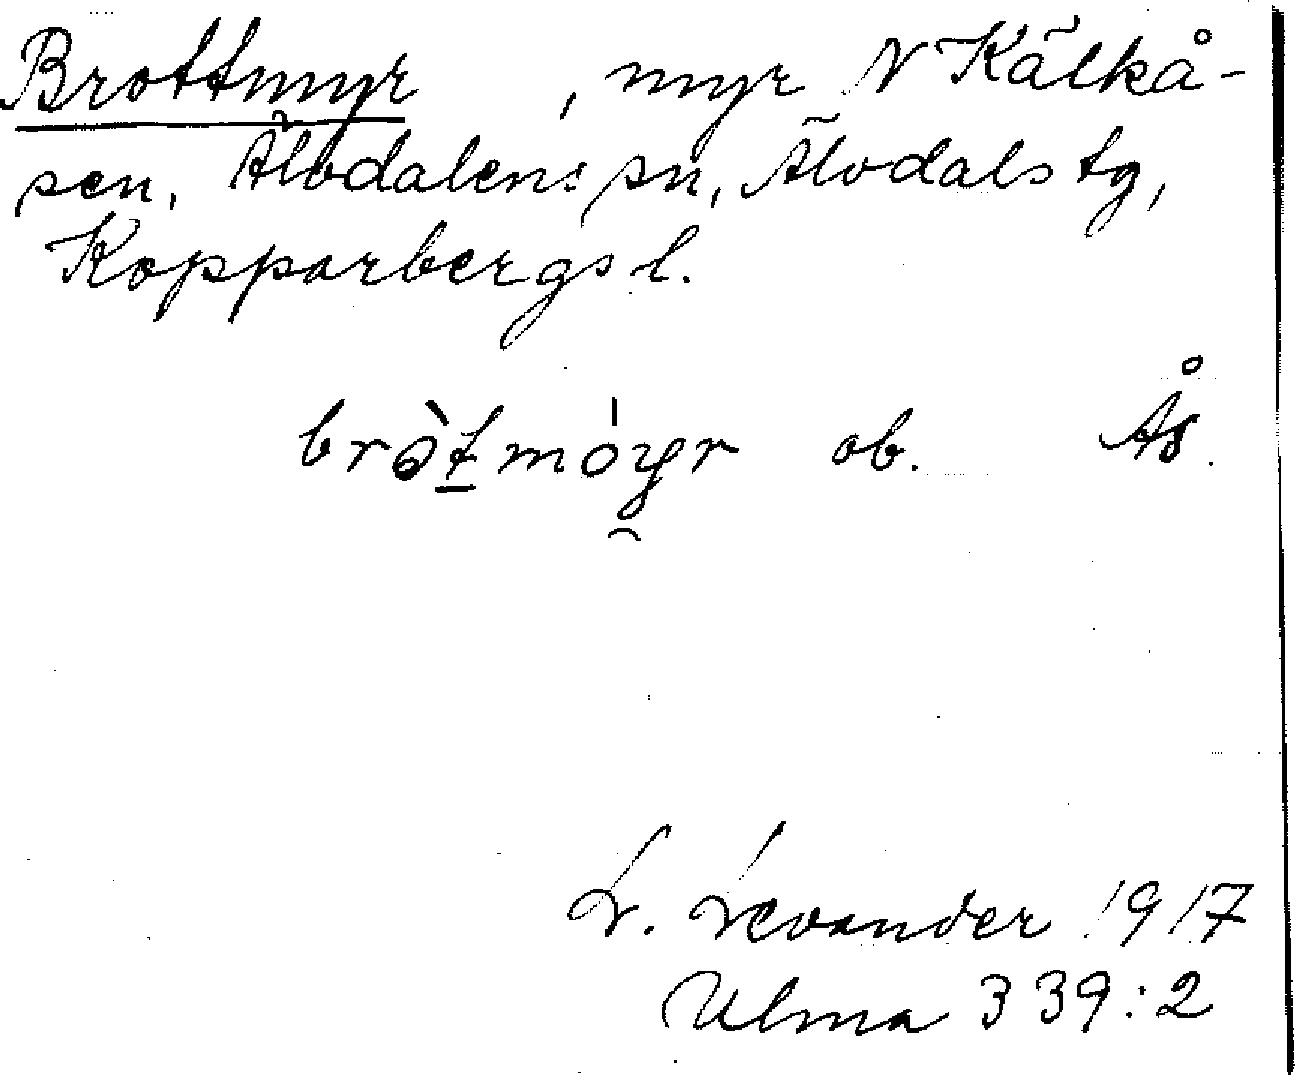 Brottmyr , myr N Kälkå-
sen, Älvdalens sn, Älvdals tg,
Kopparbergs l.
ob. Ås.
L. Levander 1917
Ulma 339:2